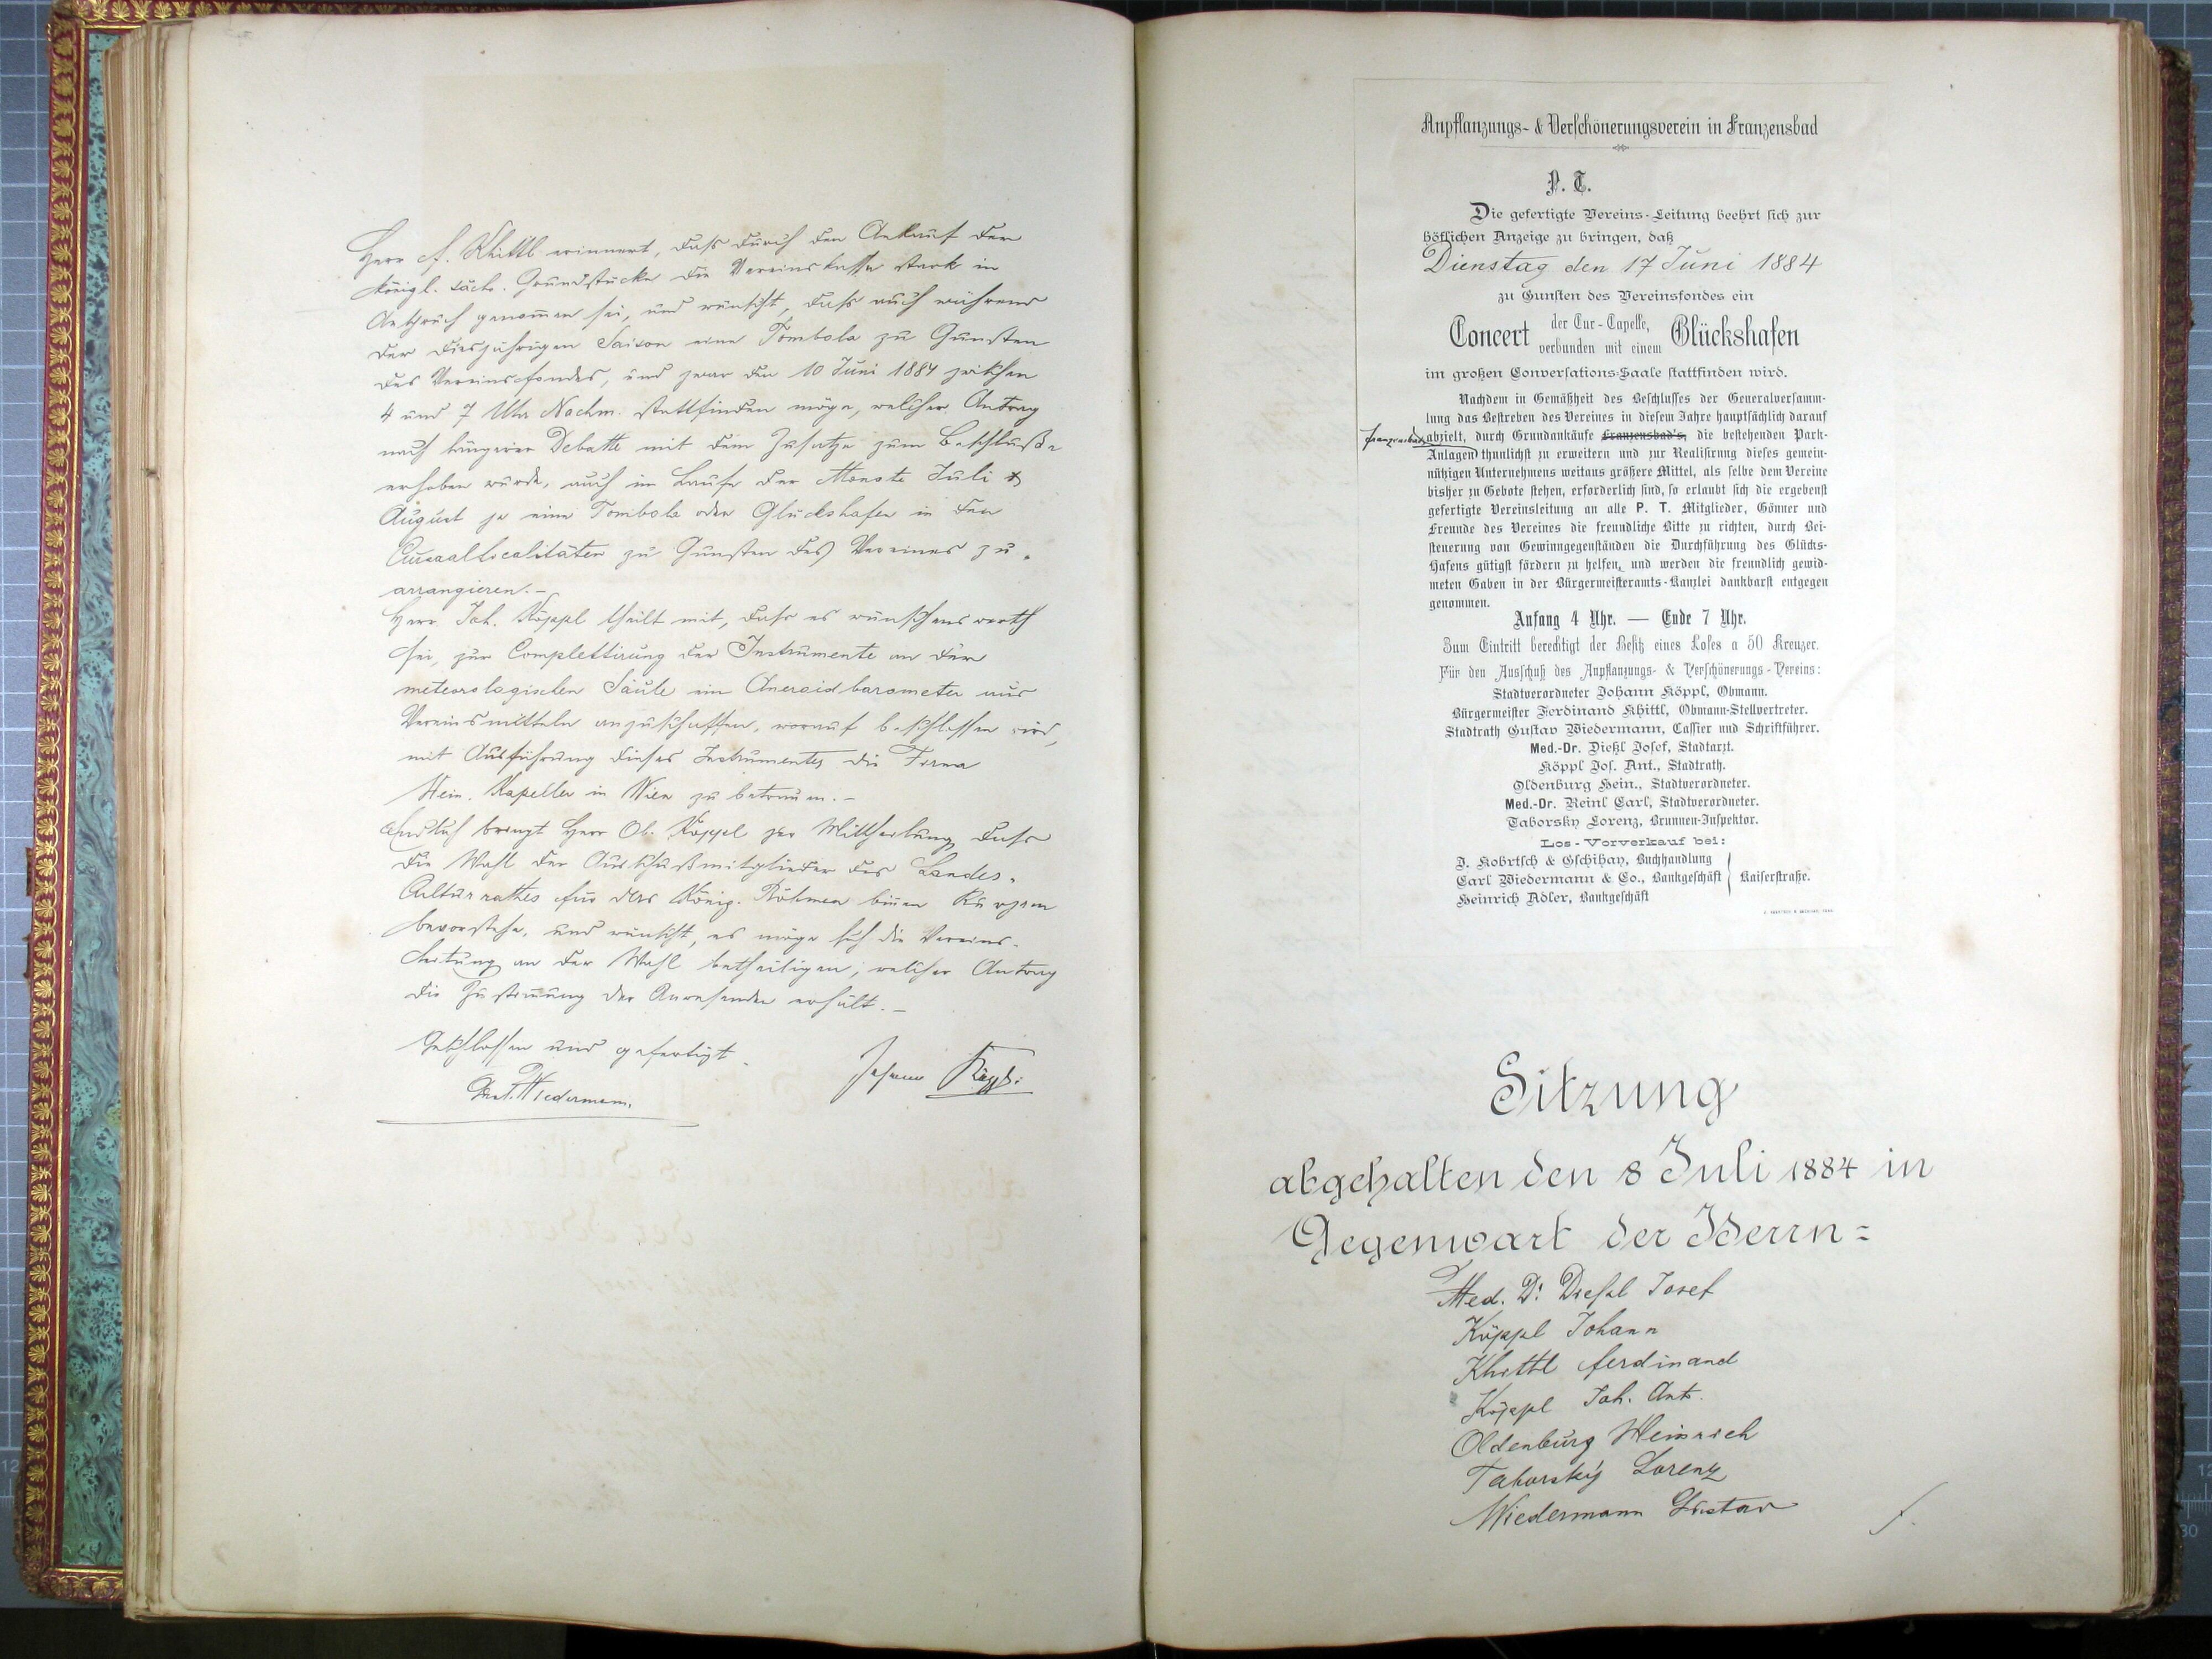 Herr F. Khittl erinnert, daß durch den Ankauf der
königl. säch. Grundstücke die Vereinskasse stark in
Anspruch genommen sei, und wünscht, daß auch während
der diesjährigen Saison eine Tombola zu Gunsten
des Vereinsfondes, und zwar den 10 Juni 1884 zwischen
4 und 7 Uhr Nachm. stattfinden möge, welcher Antrag
nach längerer Debatte mit dem Zusatze zum Beschluße
erhoben wurde, auch im Laufe der Monate Juli &
August je eine Tombola oder Glückshafen in den
Cursaallocalitäten zu Gunsten des Vereines zu
arrangieren.-
Herr Joh. Köppl theilt mit, daß es wünschenswerth
sei, zur Complettirung der Instrumente an der
meteorologischen Säule ein Aneroidbarometer aus
Vereinsmitteln anzuschaffen, worauf beschlossen wird,
mit Ausführung dieses Instrumentes die Firma
Hein. Kapeller in Wien zu betrauen.-
Endlich bringt Herr Ob. Köppl zur Mittheilung, daß
die Wahl der Ausschußmitglieder des Landes-
Culturrathes für das König. Böhmen binnen Kurzem
bevorstehe, und wünscht, es möge sich die Vereins-
leitung an der Wahl betheiligen, welcher Antrag
die Zustimmung der Anwesenden erhält.-
Geschlossen und gefertigt.
Gust. Wiedermann.
Johann Köppl
Anpflanzungs- & Verschönerungsverein in Franzensbad
P. T.
Die gefertigte Vereins-Leitung beehrt sich zur
höflichen Anzeige zu bringen, daß
Dienstag den 17 Juni 1884
zu Gunsten des Vereinsfondes ein
Concert der Cur-Capelle, verbunden mit einem Glückshafen
im großen Conversations-Saale stattfinden wird.
Nachdem in Gemäßheit des Beschlusses der Generalversamm-
lung das Bestreben des Vereines in diesem Jahre hauptsächlich darauf
abzielt, durch Grundankäufe Franzensbad's, die bestehenden Park-
Franzensbads
Anlagen thunlichst zu erweitern und zur Realisirung dieses gemein-
nützigen Unternehmens weitaus größere Mittel, als selbe dem Vereine
bisher zu Gebote stehen, erforderlich sind, so erlaubt sich die ergebenst
gefertigte Vereinsleitung an alle P. T. Mitglieder, Gönner und
Freunde des Vereines die freundliche Bitte zu richten, durch Bei-
steuerung von Gewinngegenständen die Durchführung des Glücks-
hafens gütigst fördern zu helfen, und werden die freundlich gewid-
meten Gaben in der Bürgermeisteramts-Kanzlei dankbarst entgegen
genommen.
Anfang 4 Uhr. — Ende 7 Uhr.
Zum Eintritt berechtigt der Besitz eines Loses a 50 Kreuzer.
Für den Ausschuß des Anpflanzungs- & Verschönerungs-Vereins:
Stadtverordneter Johann Köppl, Obmann.
Bürgermeister Ferdinand Khittl, Obmann-Stellvertreter.
Stadtrath Gustav Wiedermann, Cassier und Schriftführer.
Med.-Dr. Dießl Josef, Stadtarzt.
Köppl Jos. Ant., Stadtrath.
Oldenburg Hein., Stadtverordneter.
Med.-Dr. Reinl Carl, Stadtverordneter.
Taborsky Lorenz, Brunnen-Inspektor.
Los-Vorverkauf bei:
J. Kobrtsch & Gschihay, Buchhandlung
Carl Wiedermann & Co., Bankgeschäft } Kaiserstraße.
Heinrich Adler, Bankgeschäft
Sitzung
abgehalten den 8 Juli 1884 in
Gegenwart der Herrn:
Med. Dr. Dießl Josef
Köppl Johann
Khittl Ferdinand
Köppl Joh. Ant.
Oldenburg Heinrich
Taborský Lorenz
Wiedermann Gustav